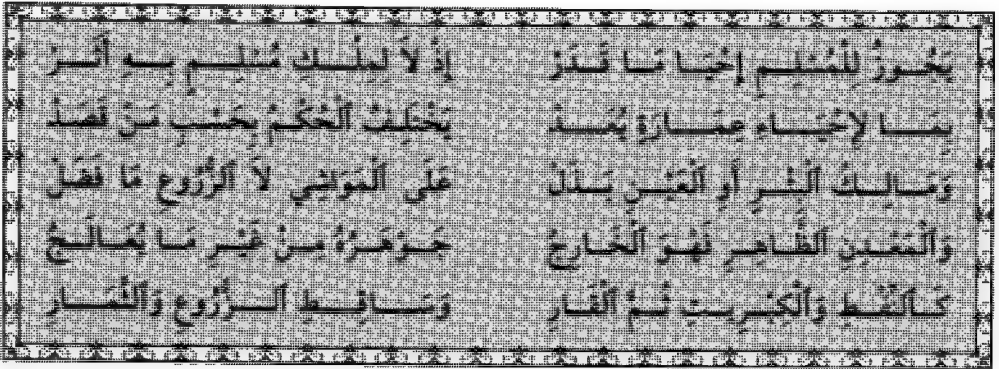 يَجُوزُ لِلْمُسْلِمِ إِحْيَا مَا قَدَرْ إِذْ لاَ لِمِلْكِ مُسْلِمٍ بِهِ أَثَرْ
بِمَا لإِحْيَاءِ عِمَارَةٍ يُعَدْ يَخْتَلِفُ ٱلْحُكْمُ بِحَسْبِ مَنْ قَصَدْ
وَمَالِكُ ٱلْبِئْرِ أَوِ ٱلْعَيْنِ بَذَلْ عَلَى ٱلْمَوَاشِي لاَ ٱلزُّرُوعِ مَا فَضَلْ
وَٱلْمَعْدِنِ ٱلظَّاهِرِ فَهْوَ ٱلْخَارِجُ جَوْهَرُهُ مِنْ غَيْرِ مَا يُعَالَجُ
كَٱلنِّفْطِ وَٱلْكِبْرِيتِ ثُمَّ ٱلْقَارِ وَسَاقِطِ ٱلزُّرُوعِ وَٱلثِّمَارِ